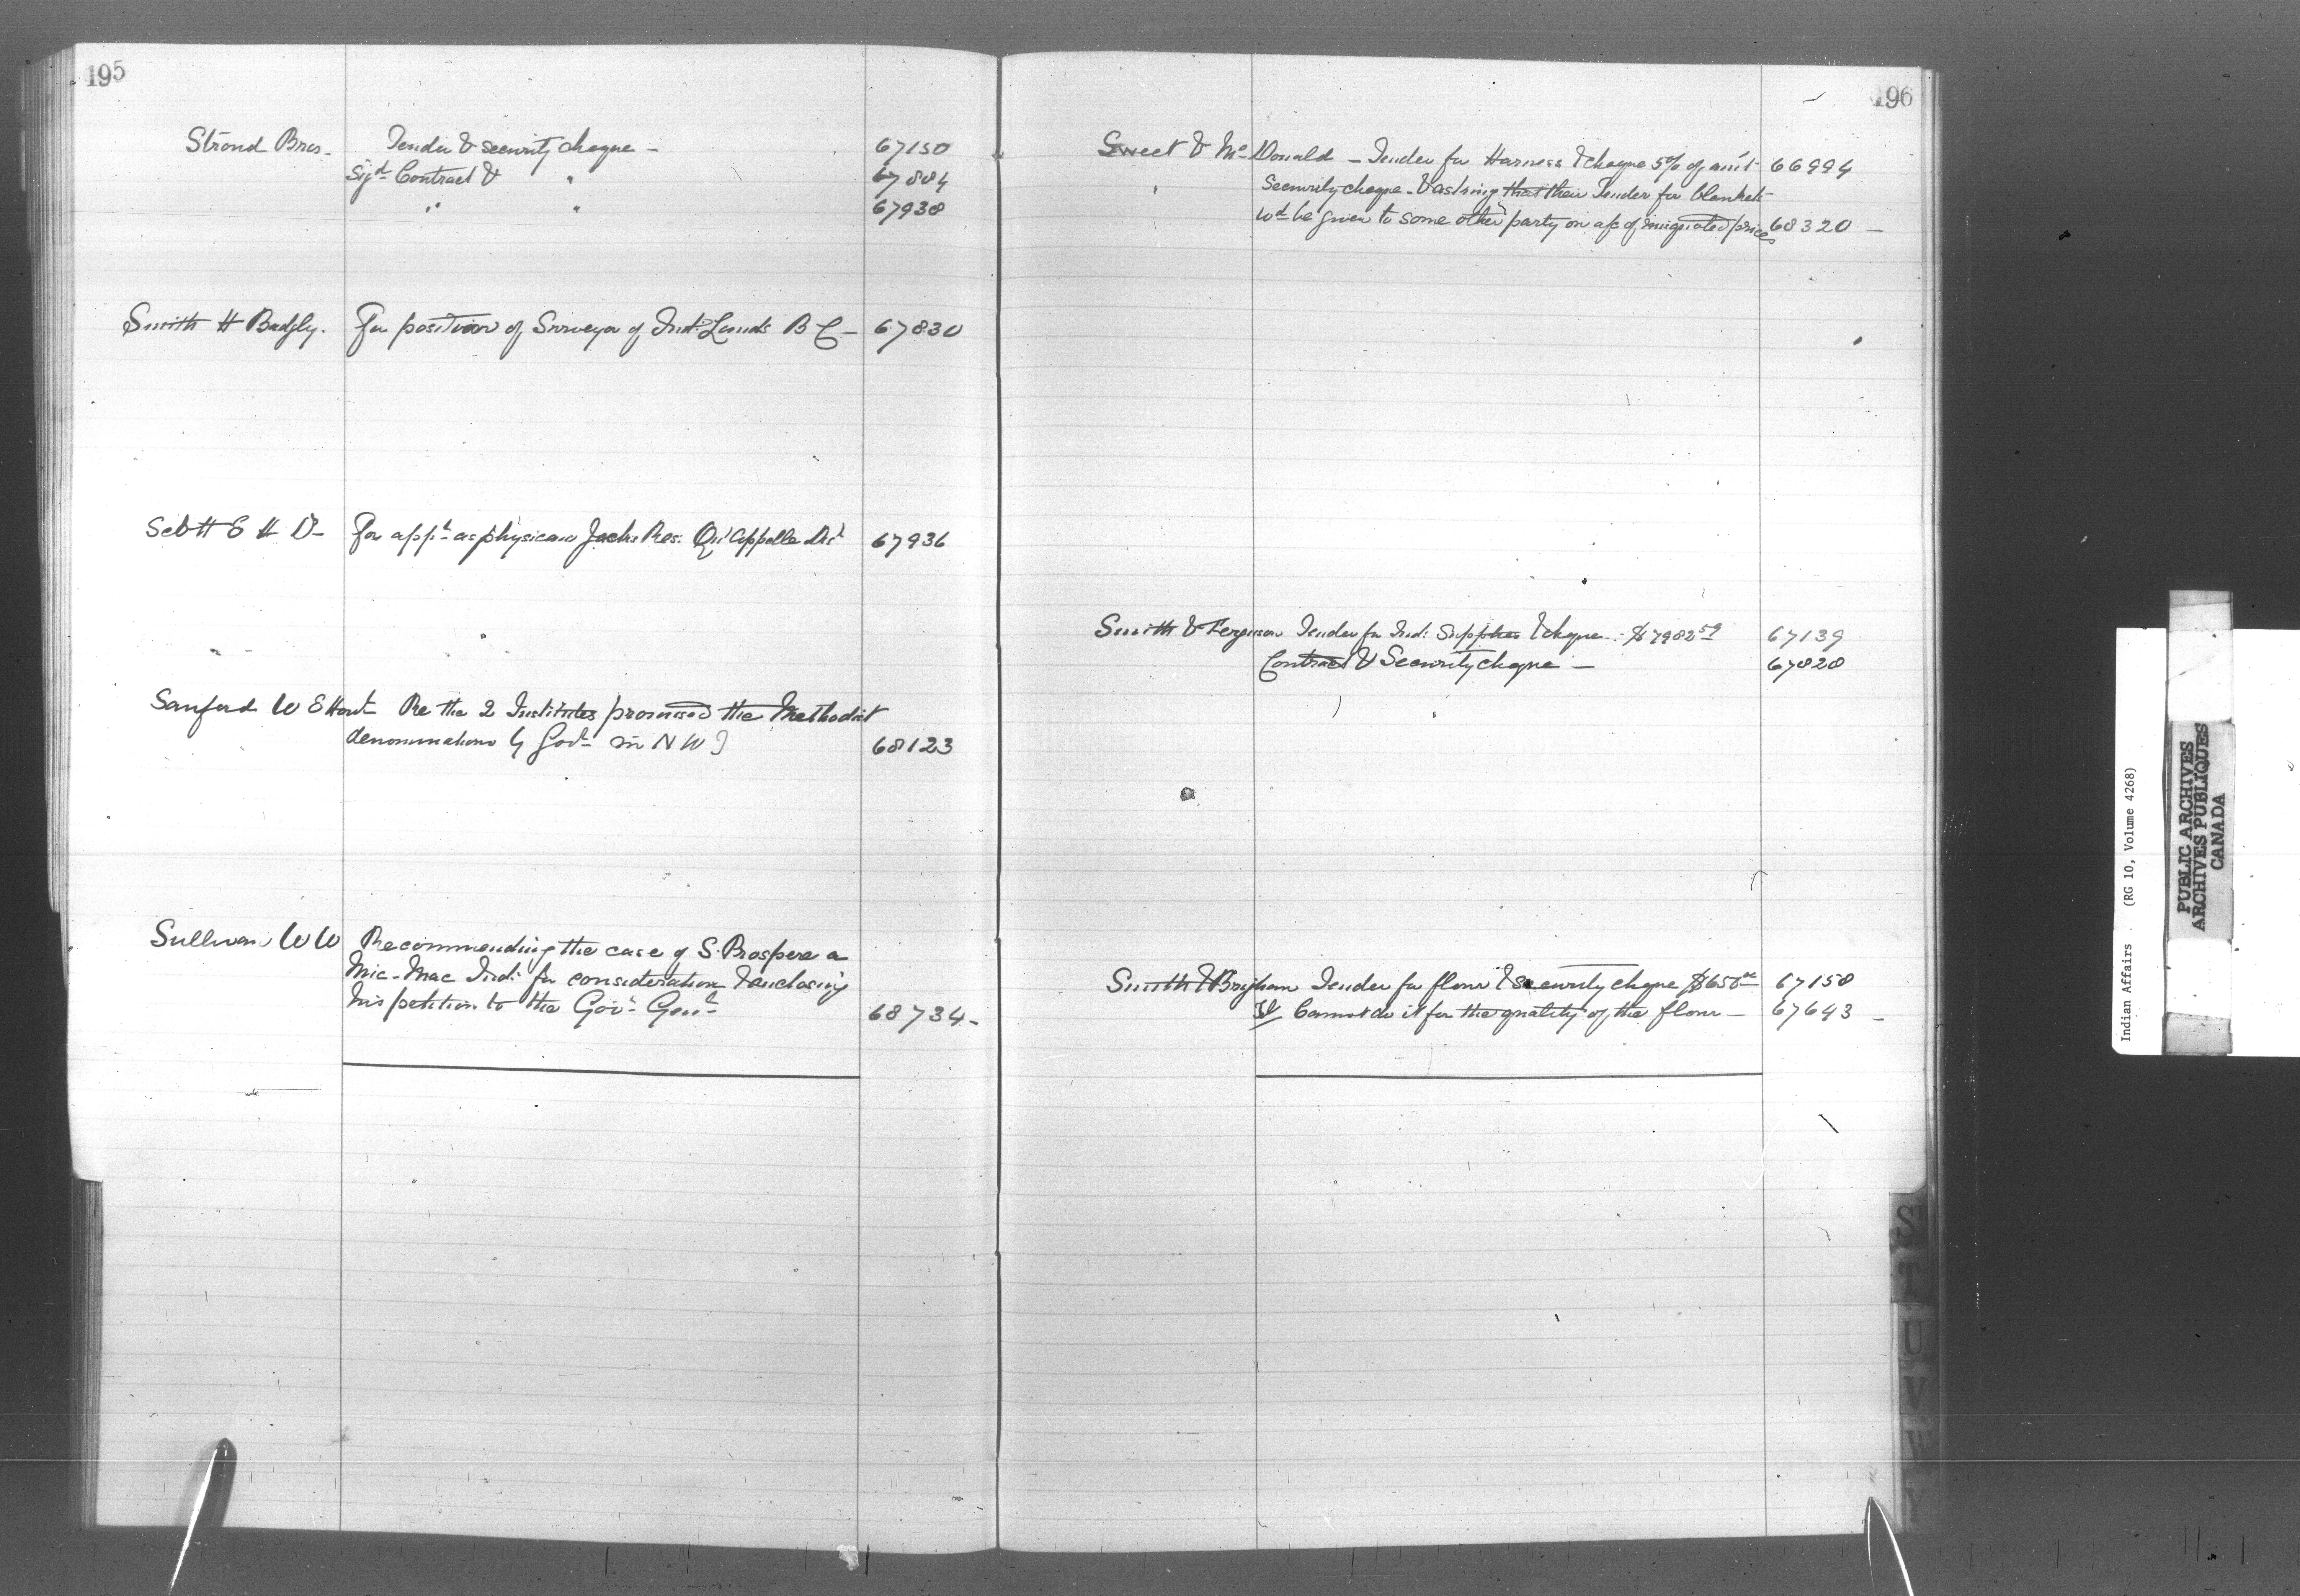 195
Strond Bros. Tender & security cheque — 67150
Sigd Contract & " 67804
" " 67938
Smith H Badgly. For position of Surveyor of Ind: Lands B C — 67830
Scott E H Dr For appt as physican Jacks Res: Qu'Appelle Dist 67936
Sanford W E Hont Re the 2 Institutes promised the Methodist
denominations by Govt in N W T 68123
Sullivan W W Recommending the case of S. Prospere a
Mic-Mac Ind: for consideration & enclosing
his petition to the Govr Genl 68734 -
196
Sweet & McDonald — Tender for Harness & cheque 5% of am't 66994
Security cheque - & asking that their Tender for blankets
wd be given to some other party on a/c of misquoted prices 68320 —
Smith & Ferguson Tender for Ind: Supplies & cheque - $7982.59 67139
Contract & Security cheque — 67828
Smith & Brigham Tender for flour & security cheque $650.00 67158
Cannot do it for the quality of the flour — 67643 —
ST
T
U
V
W
Y
Indian Affairs . (RG 10, Volume 4268)
PUBLIC ARCHIVES
ARCHIVES PUBLIQUES
CANADA